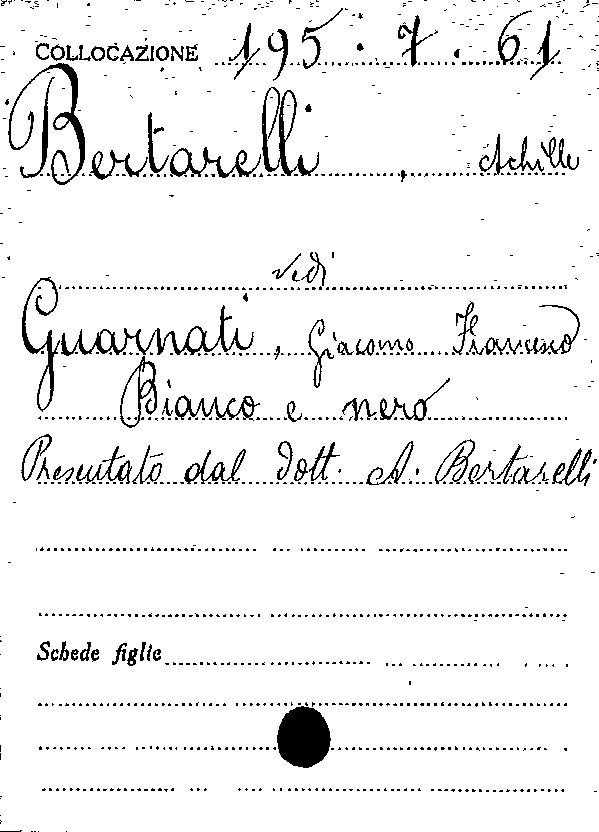 COLLOCAZIONE 195.7.61
Bertarelli, Achille
vedi
Guarnati, Giacomo Francesco
Bianco e nero
Presentato dal Dott. A. Bertarelli
Schede figlie